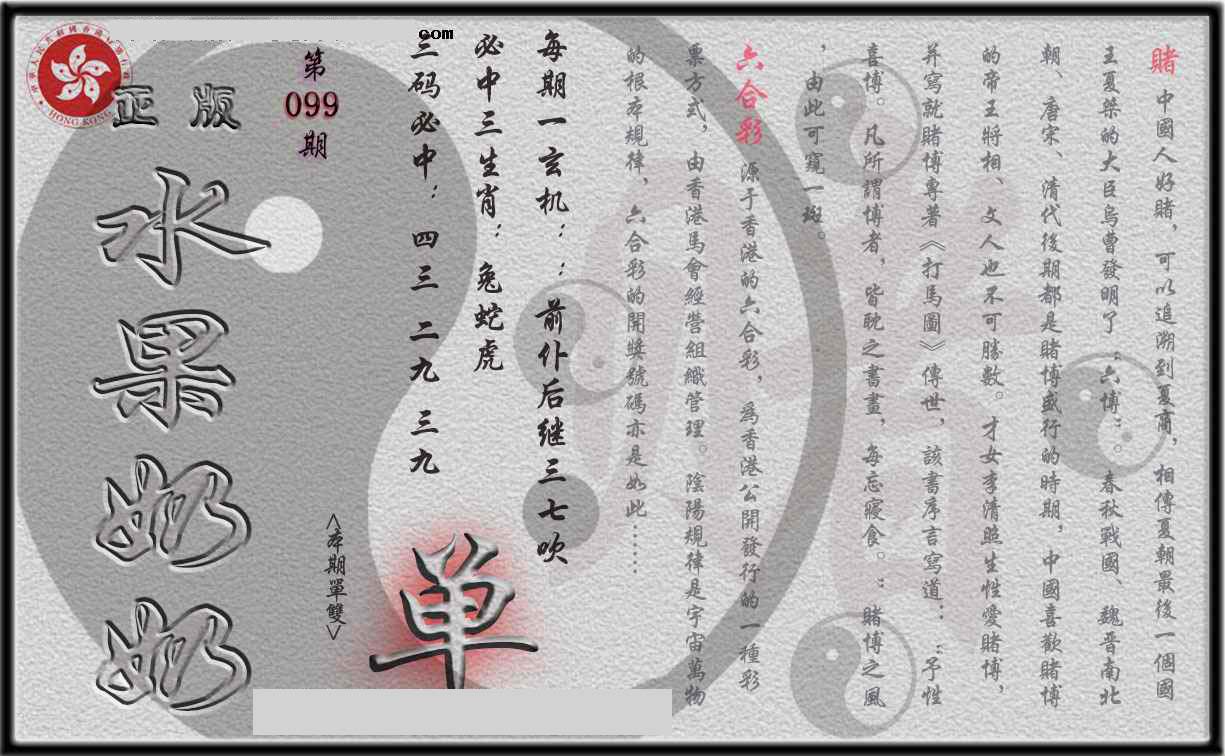 com
賭 中國人好賭，可以追溯到夏商，相傳夏朝最後一個國
王夏桀的大臣烏曹發明了“六博”。春秋戰國、魏晉南北
朝、唐宋、清代後期都是賭博盛行的時期，中國喜歡賭博
的帝王將相、文人也不可勝數。才女李清照生性愛賭博，
并寫就賭博專著《打馬圖》傳世，該書序言寫道：“予性
喜博。凡所謂博者，皆耽之書畫，每忘寢食。”賭博之風
，由此可窺一斑。
六合彩 源于香港的六合彩，為香港公開發行的一種彩
票方式，由香港馬會經營組織管理。陰陽規律是宇宙萬物
的根本規律、六合彩的開獎號碼亦是如此……
每期一玄机：：前仆后继三七吹
必中三生肖：兔蛇虎
三码必中：四三 二九 三九
单
<本期單雙>
第
099
期
正版
水果奶奶
HONG KONG